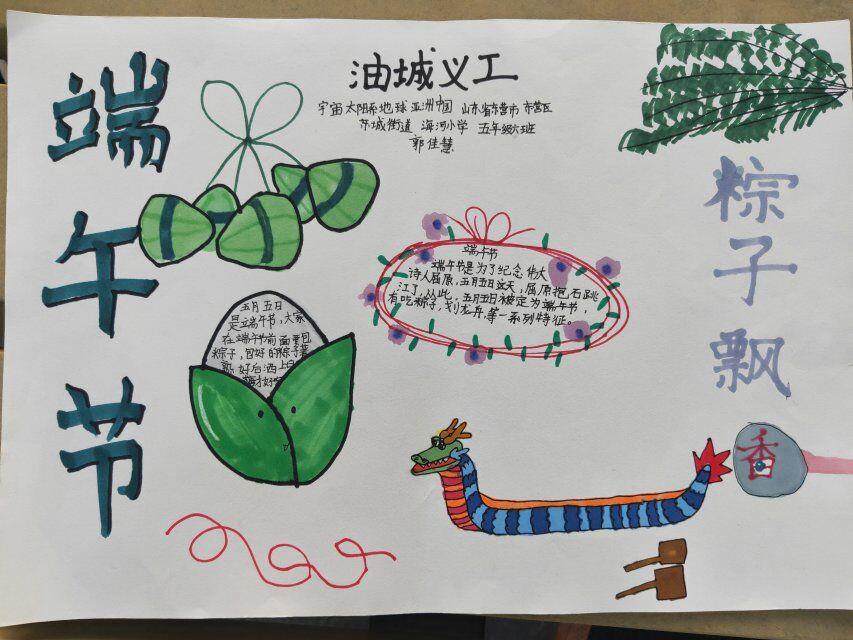 端午节
油城义工
宇宙太阳系地球亚洲中国 山东省东营市东营区
东城街道 海河小学 五年级六班
郭佳慧
粽子飘
香
五月五日
是端午节,大家
在端午节前面要包
粽子,包好的粽子蒸
熟好后洒上白
端午节
端午节是为了纪念伟大
诗人屈原,五月五日这天,屈原抱石跳
江了,从此,五月五日被定为端午节,
有吃粽子,划龙舟,等一系列特征。